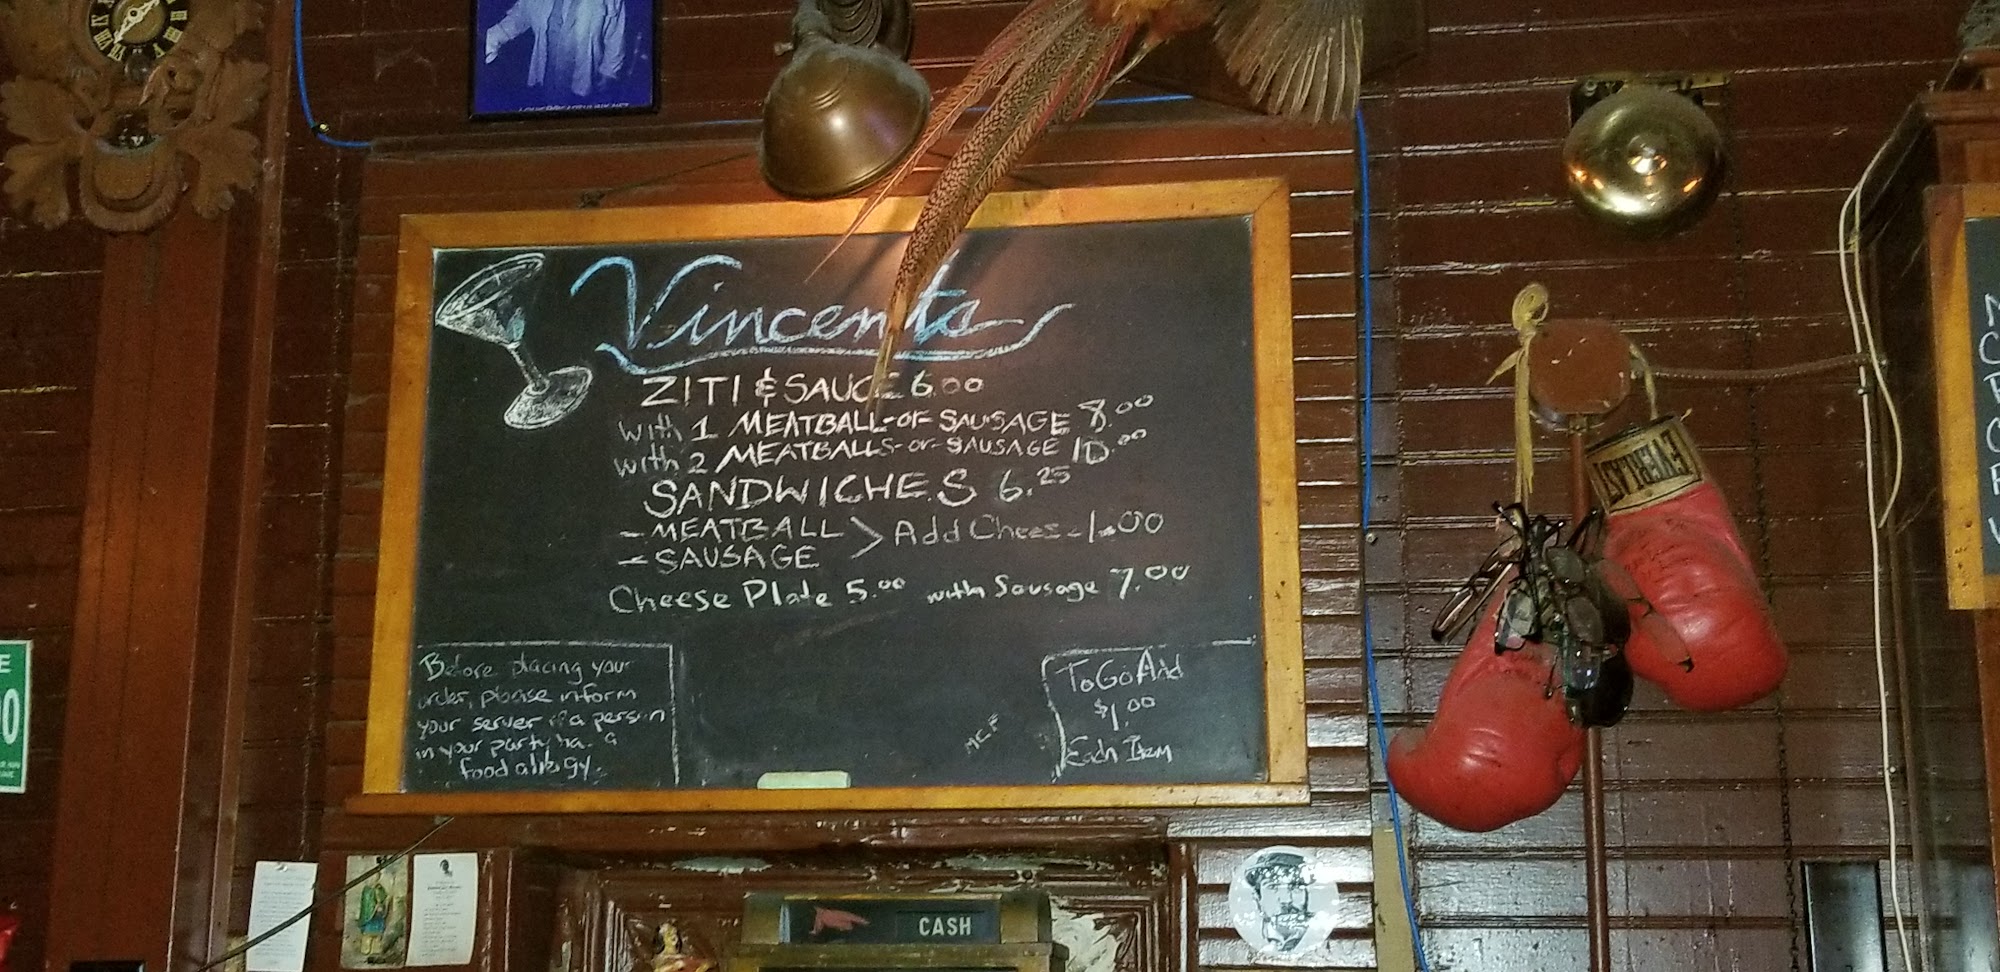 Vincents
ZITI & SAUCE 6.00
with 1 MEATBALL-or-SAUSAGE 8.00
with 2 MEATBALLS-or-SAUSAGE 10.00
SANDWICHES 6.25
- MEATBALL > Add Cheese 1.00
- SAUSAGE
Cheese Plate 5.00 with Sausage 7.00
Before placing your
order, please inform
your server if a person
in your party has a
food allergy.
To Go Add
$1.00
Each Item
EVERLAST
CASH